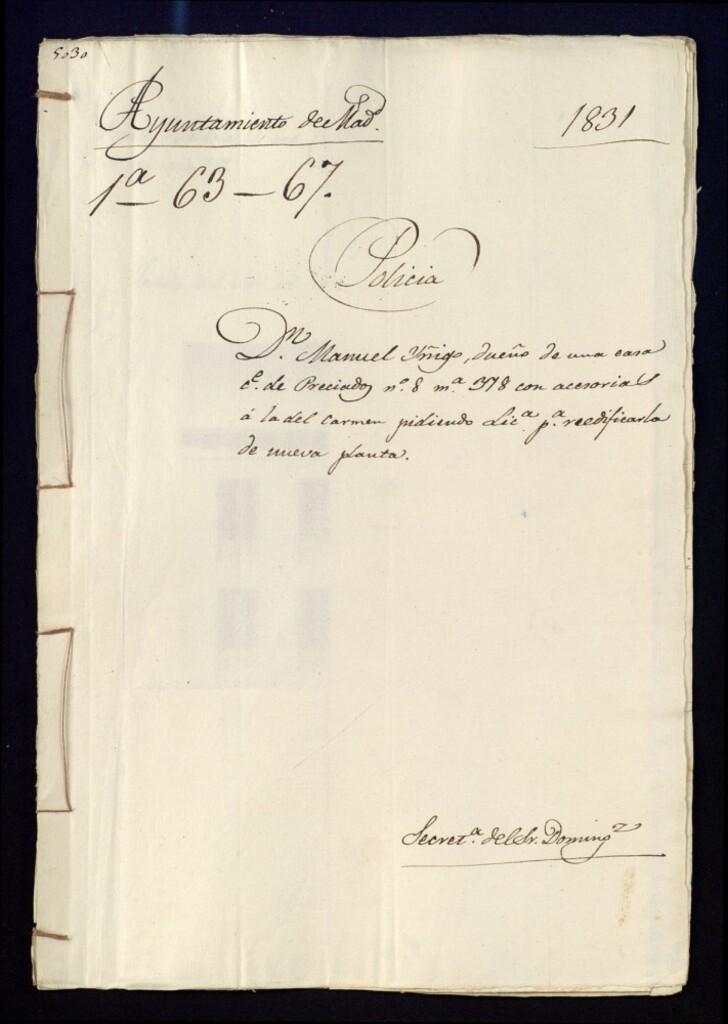 5030
Ayuntamiento de Mad.d
1831
1ª 63 — 67.
Policia
D.n Manuel Yñigo, dueño de una casa
c.e de Preciados nº. 8 m.ª 378 con acesorias
á la del Carmen pidiendo Lic.ª p.ª reedificarla
de nueva planta.
Secret.ª del Sr. Doming.z